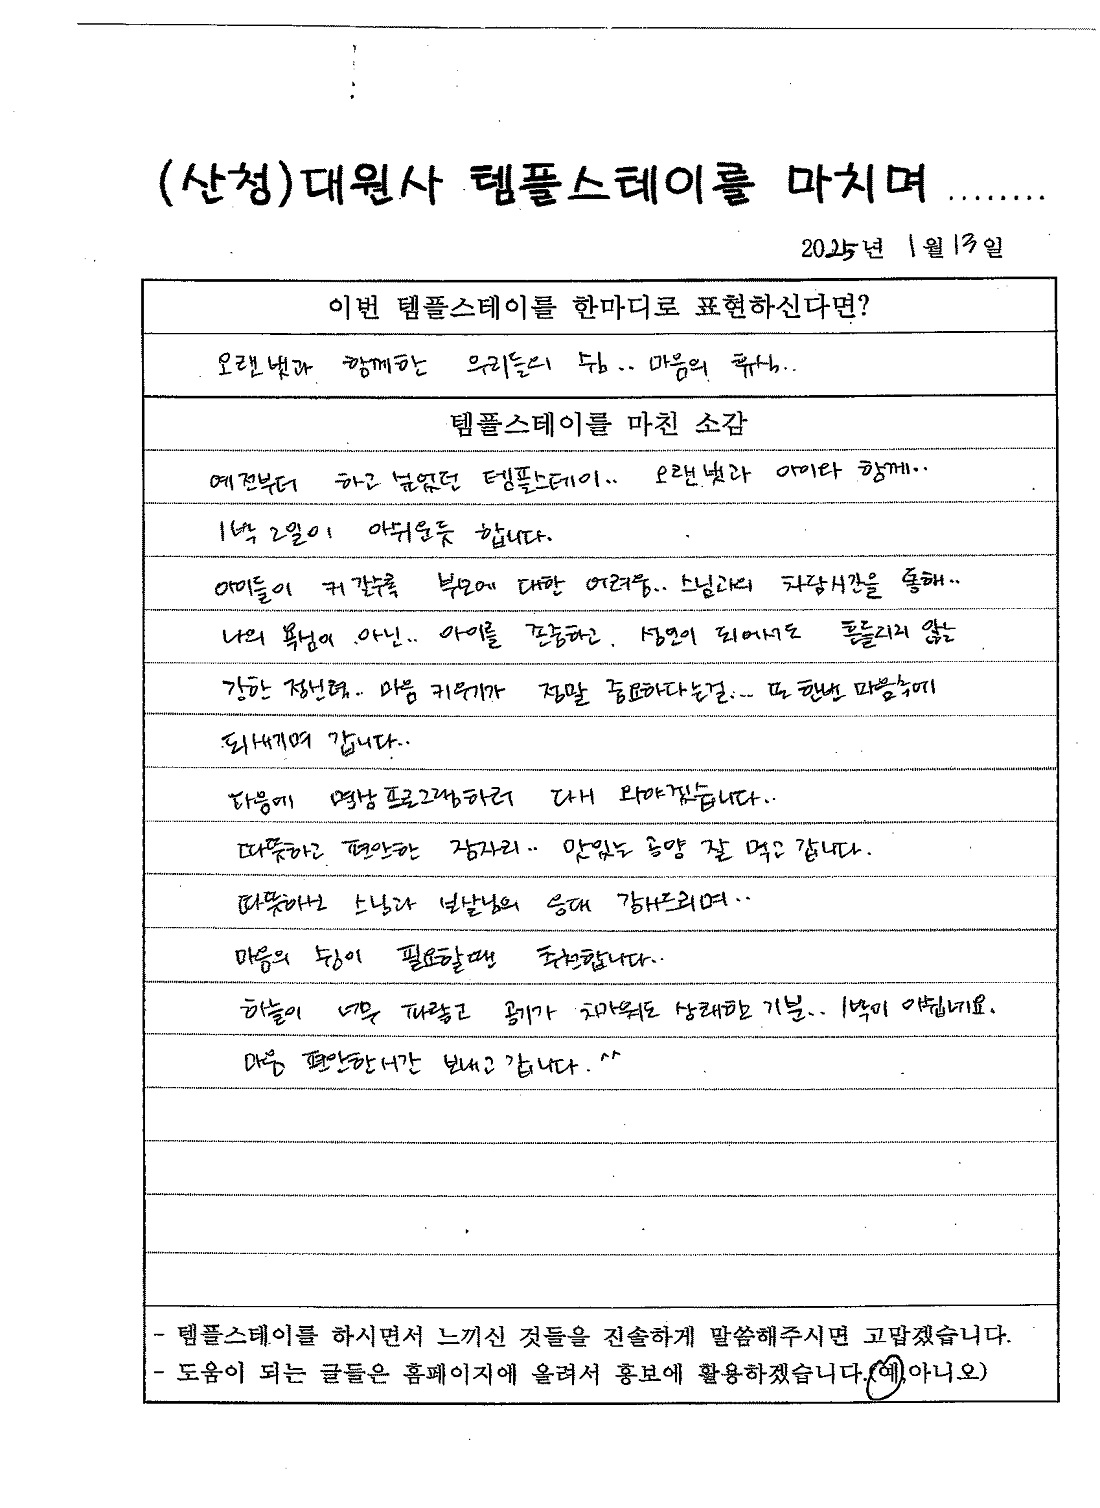 (산청)대원사 템플스테이를 마치며 ........
2025년 1월 13일
이번 템플스테이를 한마디로 표현하신다면?
오랜 벗과 함께한 우리들의 쉼.. 마음의 휴식..
템플스테이를 마친 소감
예전부터 하고 싶었던 템플스테이.. 오랜 벗과 아이와 함께..
1박 2일이 아쉬운듯 합니다.
아이들이 커 갈수록 부모에 대한 어려움.. 스님과의 차담시간을 통해..
나의 욕심이 아닌.. 아이를 존중하고. 성인이 되어서도 흔들리지 않는
강한 정신력.. 마음 키우기가 정말 중요하다는걸... 또 한번 마음속에
되새기며 갑니다..
다음에 명상 프로그램하러 다시 와야겠습니다..
따뜻하고 편안한 잠자리.. 맛있는 공양 잘 먹고 갑니다.
따뜻하신 스님과 보살님의 응대 감사드리며..
마음의 쉼이 필요할땐 추천합니다..
하늘이 너무 파랗고 공기가 차가워도 상쾌한 기분.. 1박이 아쉽네요.
마음 편안한 시간 보내고 갑니다. ^^
- 템플스테이를 하시면서 느끼신 것들을 진솔하게 말씀해주시면 고맙겠습니다.
- 도움이 되는 글들은 홈페이지에 올려서 홍보에 활용하겠습니다.(예,아니오)